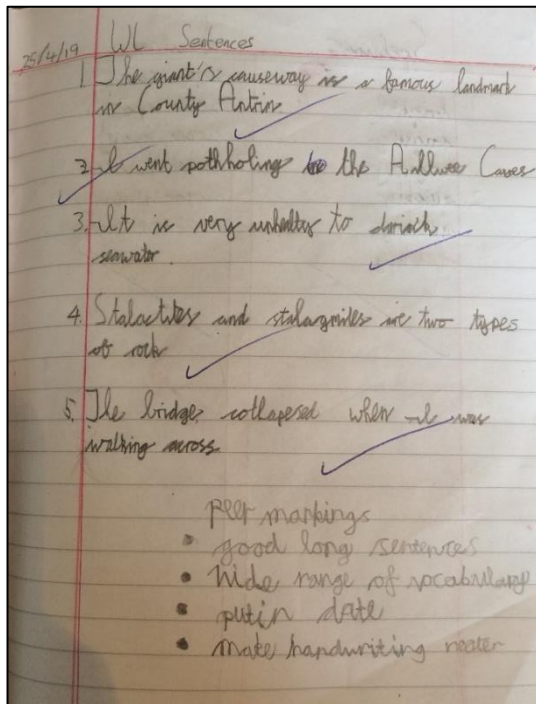 25/4/19 WL Sentences
1. The giant's causeway is a famous landmark
in County Antrim
2. I went pothholing to the Aillwee Caves
3. It is very unhealty to drink
seawater.
4. Stalactites and stalagmiles are two types
of rock
5. The bridge collapesed when I was
walking across
peer markings
• good long sentences
• wide range of vocabulary
• putin date
• make handwriting neater